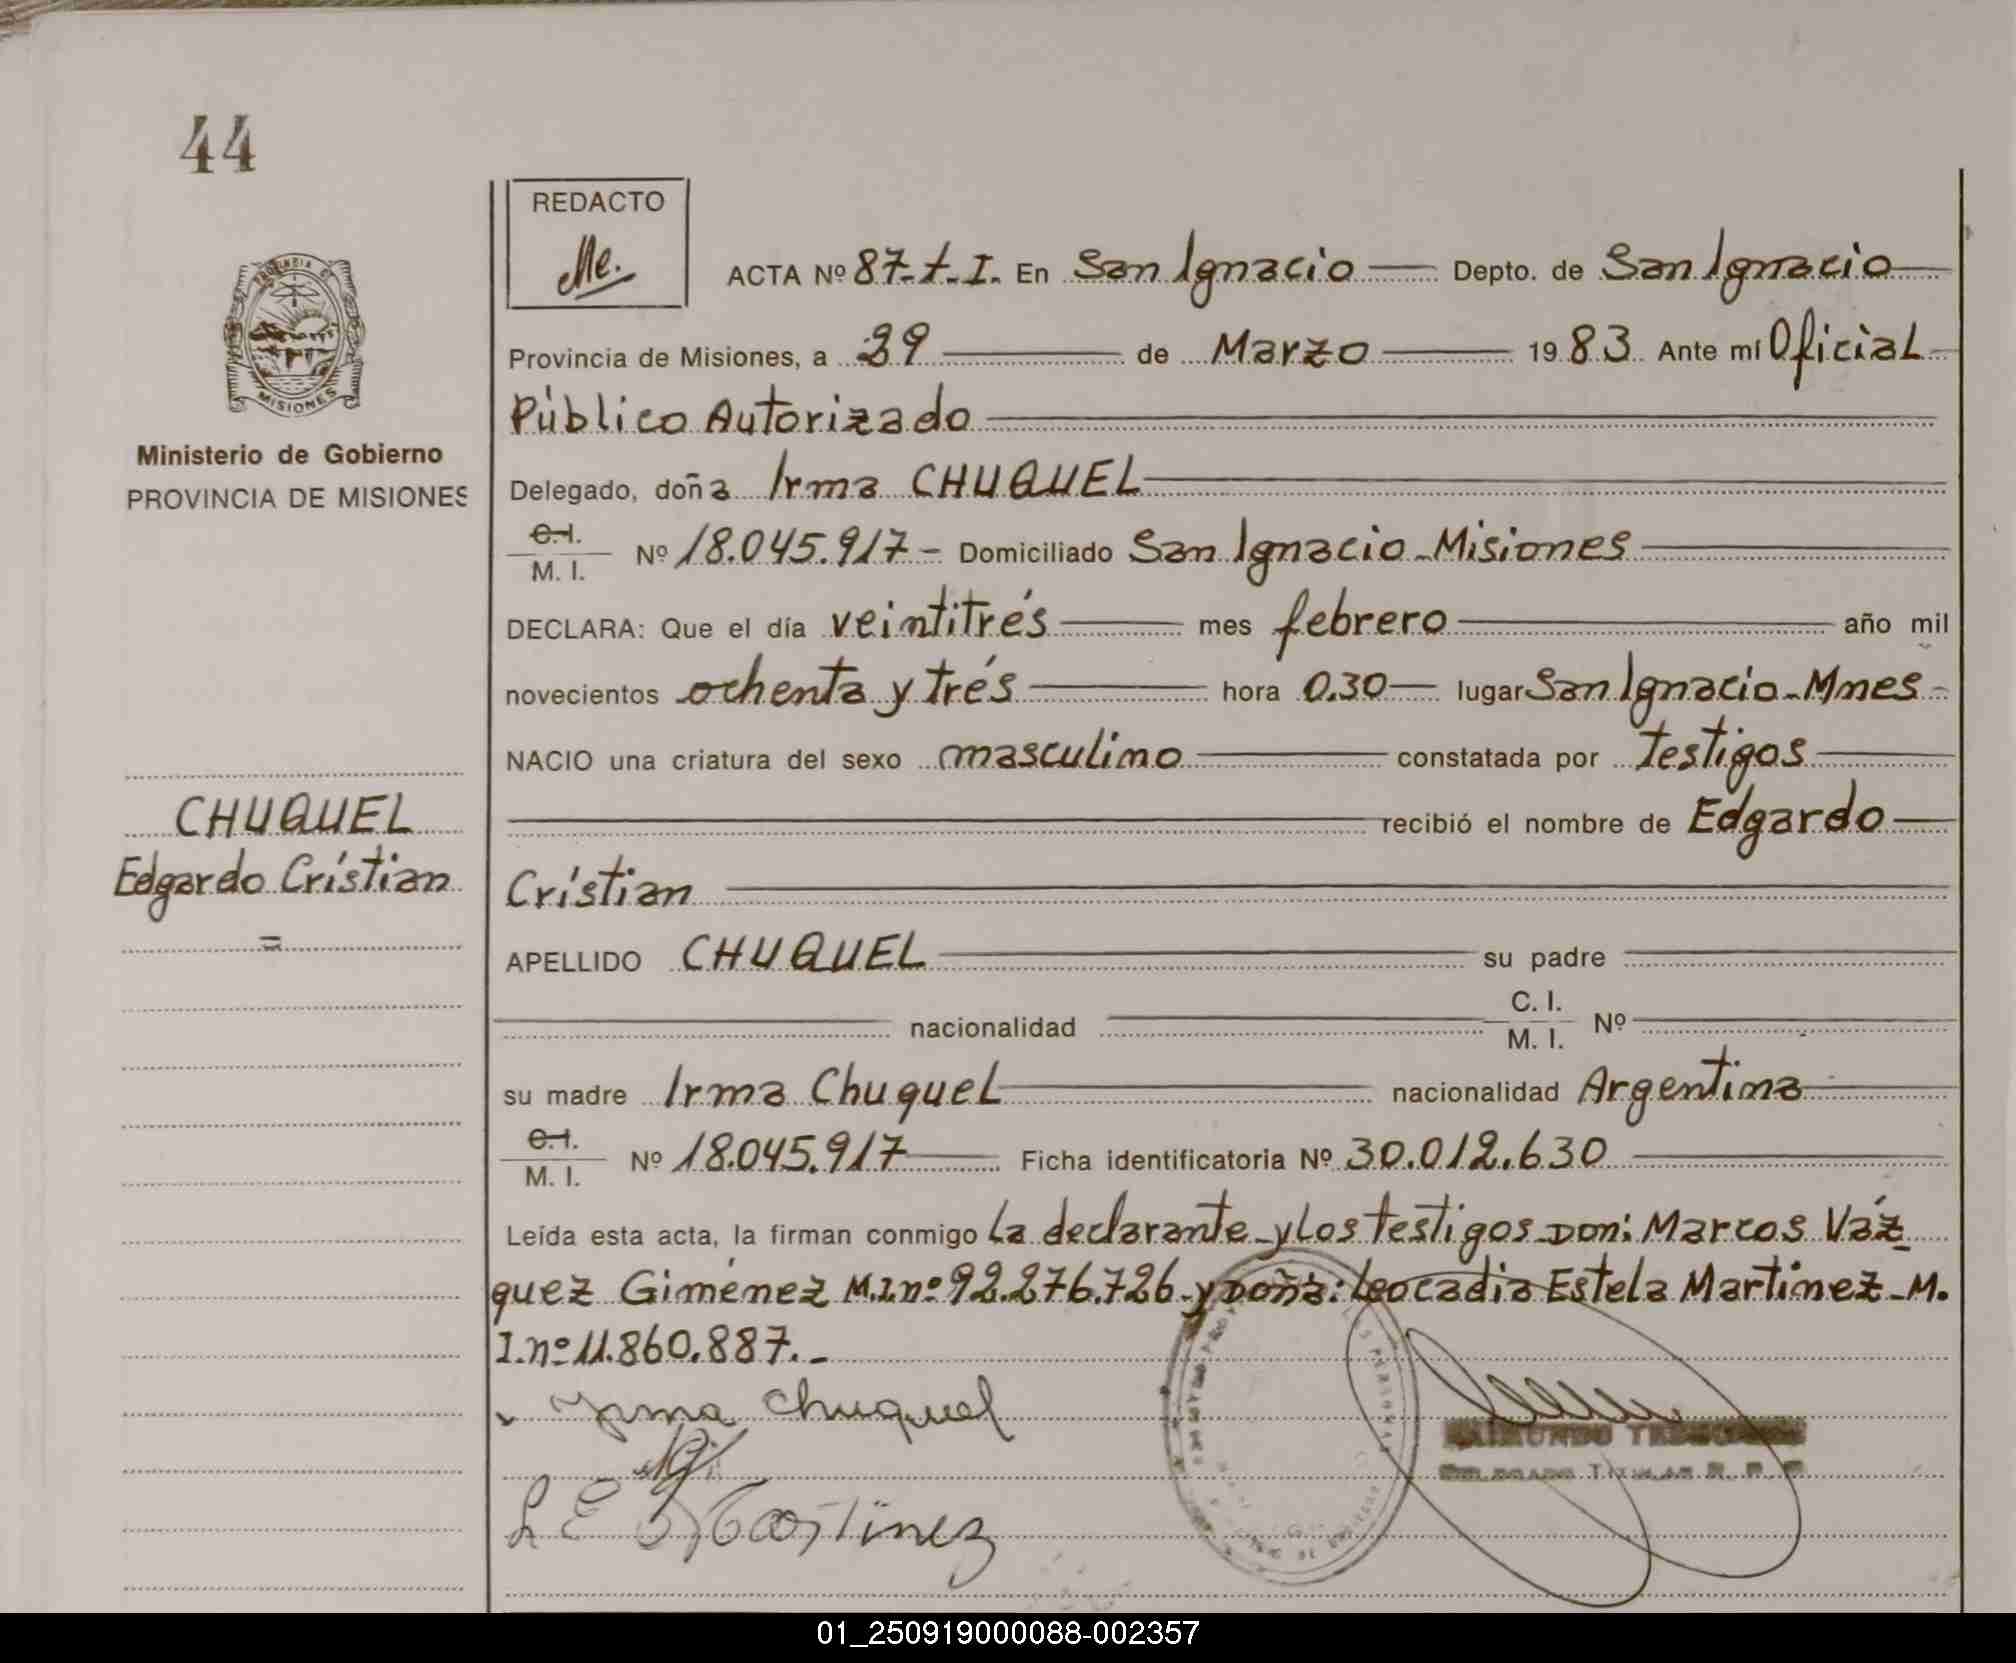 44
REDACTO
Me.
ACTA Nº 87-t-I. En San Ignacio Depto. de San Ignacio
Provincia de Misiones, a 29 de Marzo 1983 Ante mí Oficial
Público Autorizado
PROVINCIA DE
MISIONES
Ministerio de Gobierno
PROVINCIA DE MISIONES
Delegado, doña Irma CHUQUEL
C.I.
M. I. Nº 18.045.917- Domiciliado San Ignacio-Misiones
DECLARA: Que el día veintitrés mes febrero año mil
novecientos ochenta y trés hora 0.30 lugar San Ignacio-Mnes-
NACIO una criatura del sexo masculino constatada por testigos
recibió el nombre de Edgardo
Cristian
CHUQUEL
Edgardo Cristian
=
APELLIDO CHUQUEL su padre
nacionalidad C. I.
M. I. Nº
su madre Irma Chuquel nacionalidad Argentina
C.I.
M. I. Nº 18.045.917 Ficha identificatoria Nº 30.012.630
Leída esta acta, la firman conmigo la declarante y los testigos Don: Marcos Váz
quez Gimenez M.I.nº 92.276.726-y doña: Leocadia Estela Martinez-M.
I.nº 11.860.887.-
Irma Chuquel
L E Martinez
RAIMUNDO
DELEGADO TITULAR R. P. P.
01_250919000088-002357